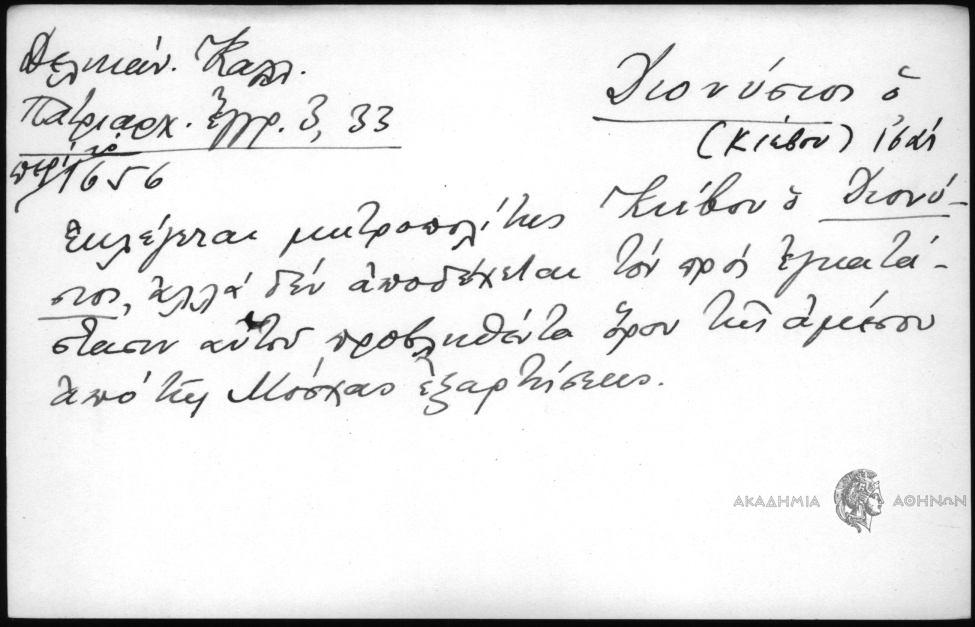 Δελικάν. Καλλ.
Πατριαρχ. Ἔγγρ. 3, 33
περί τό
1656
Διονύσιος ὁ
(Κιέβου)
Ἐκλέγεται μητροπολίτης Κιέβου ὁ Διονύ-
σιος, ἀλλά δέν ἀποδέχεται τόν πρός ἐγκατά-
στασιν αὐτοῦ προβληθέντα ὅρον τῆς ἀμέσου
ἀπό τῆς Μόσχας ἐξαρτήσεως.
ΑΚΑΔΗΜΙΑ ΑΘΗΝΩΝ